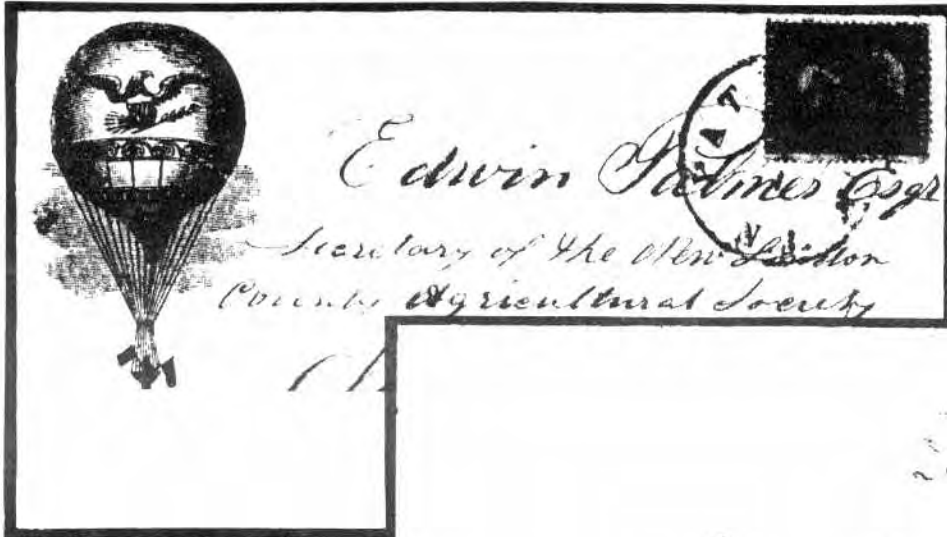 Edwin Palmer Esqr
Secretary of the New London
County Agricultural Society
WAT
N.Y.